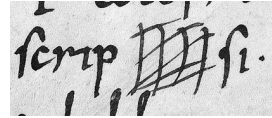 ſcrip ſi.